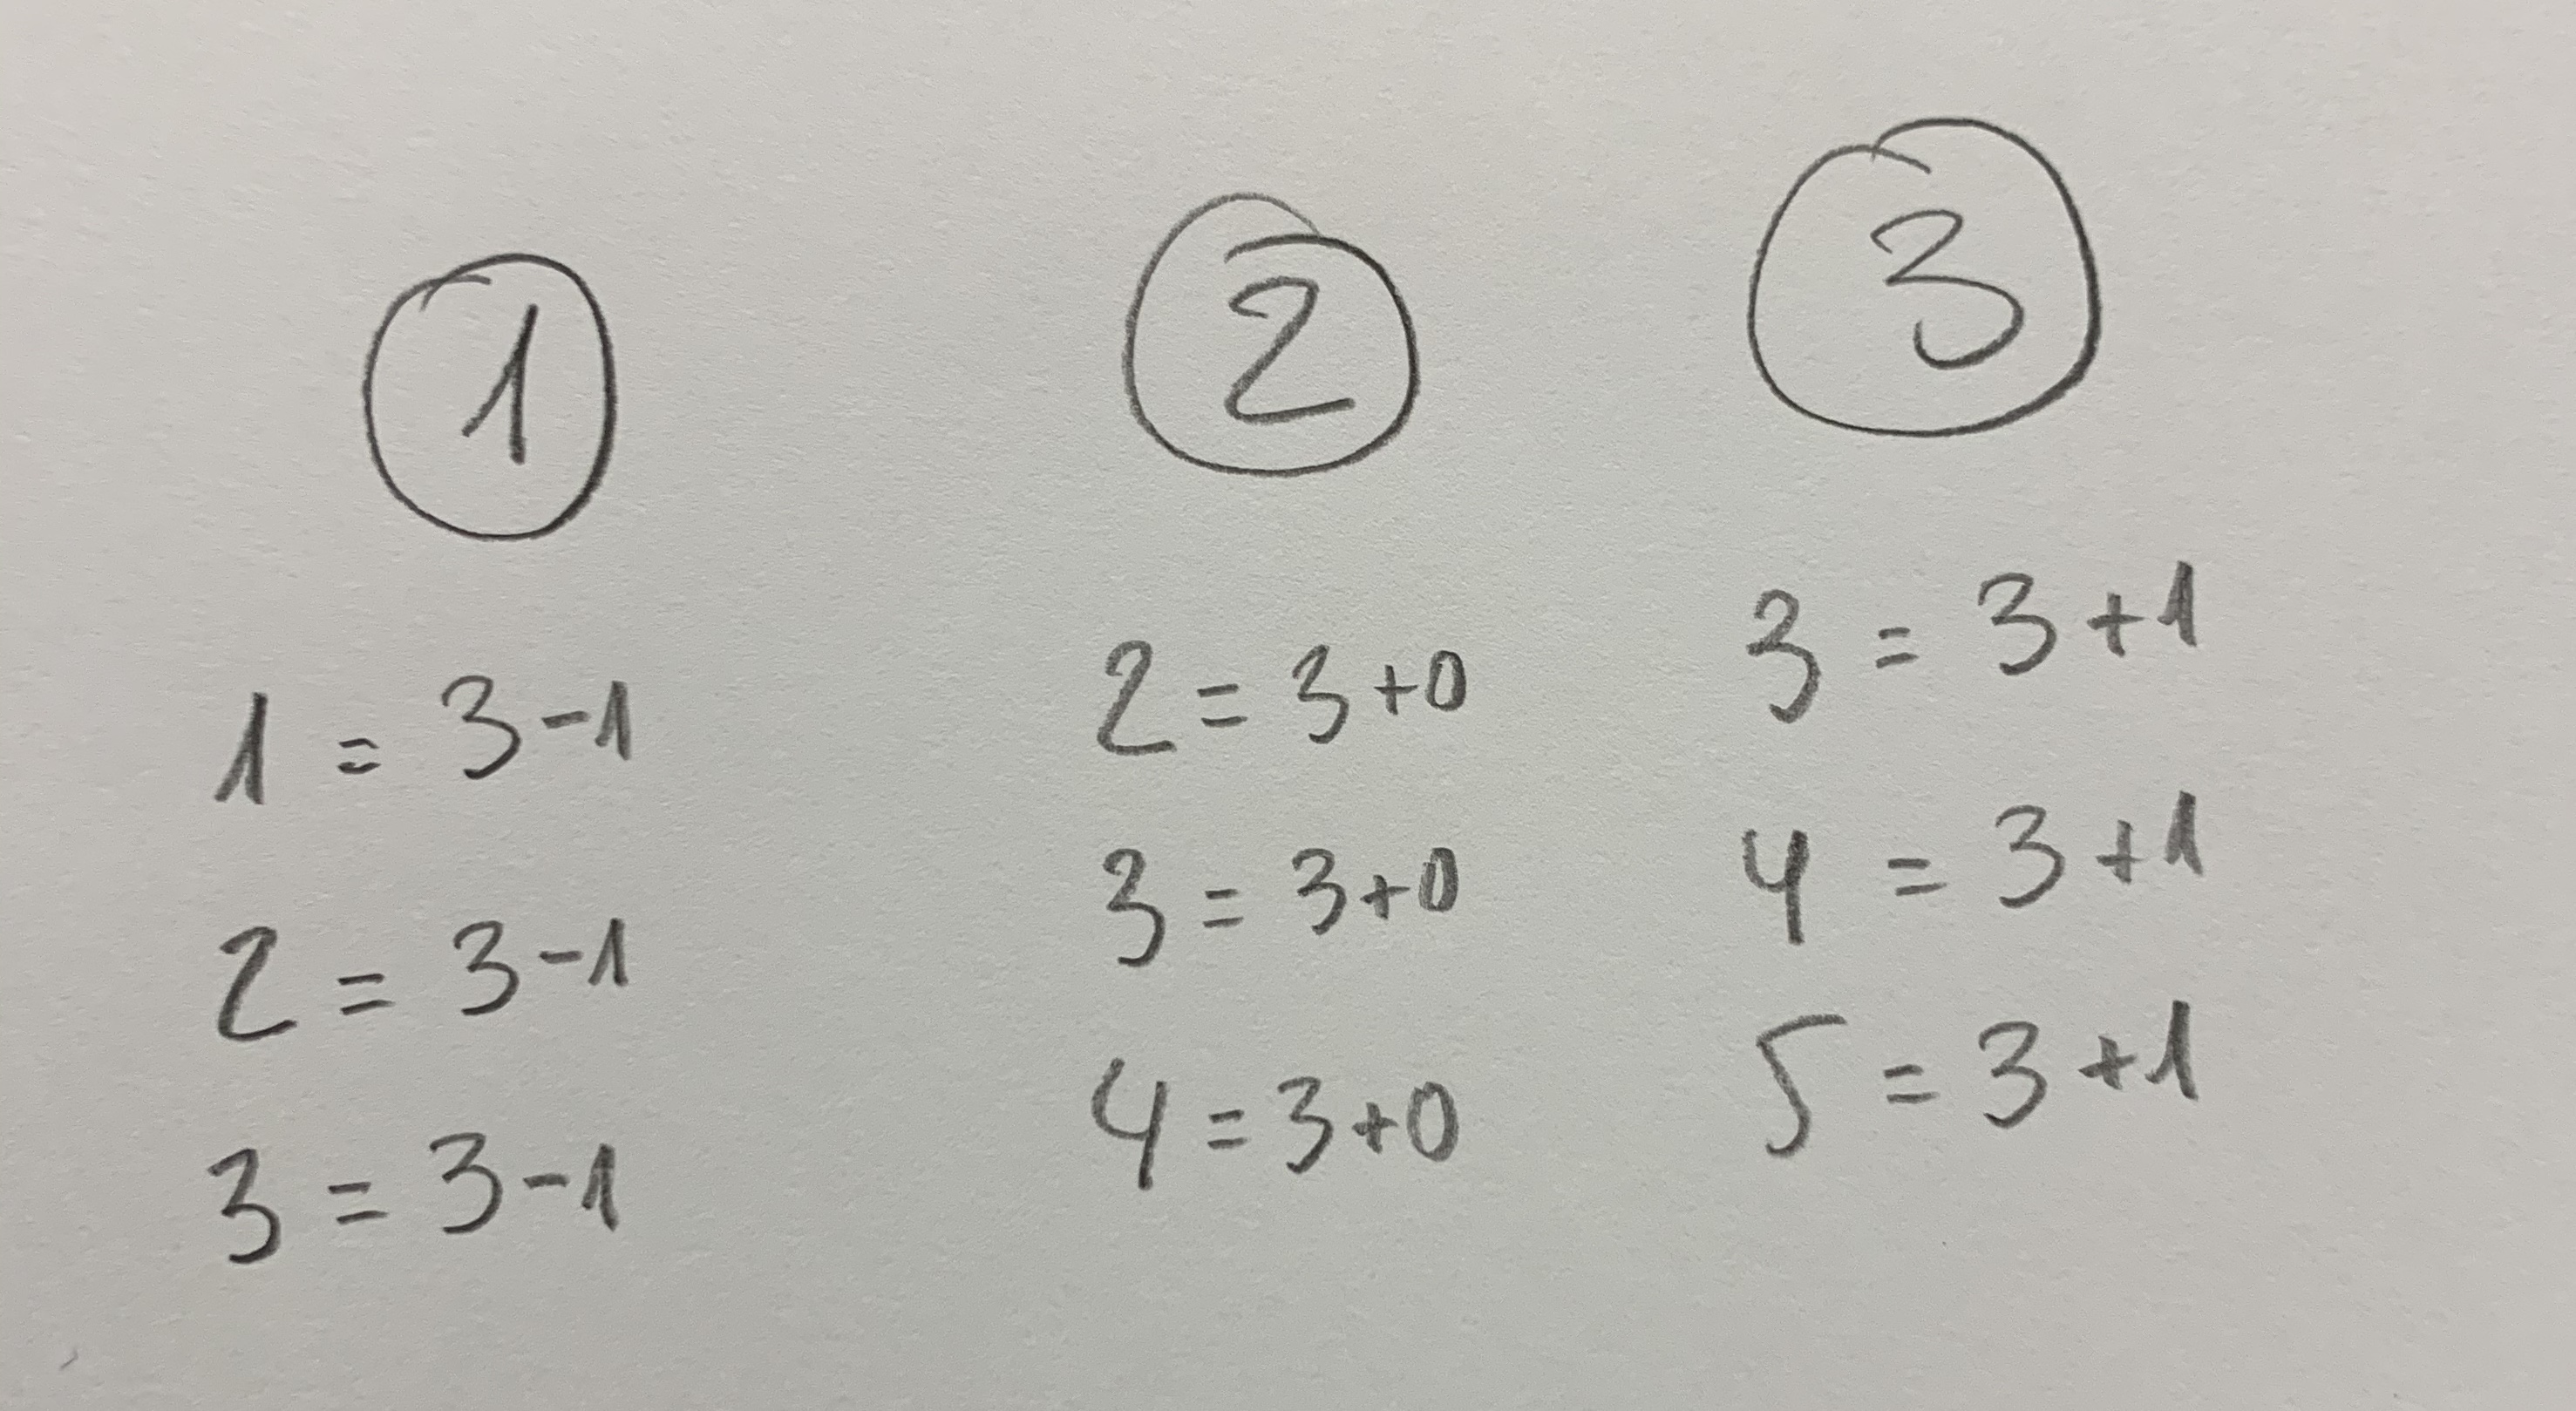 1
1 = 3-1
2 = 3-1
3 = 3-1
2
2 = 3+0
3 = 3+0
4 = 3+0
3
3 = 3+1
4 = 3+1
5 = 3+1